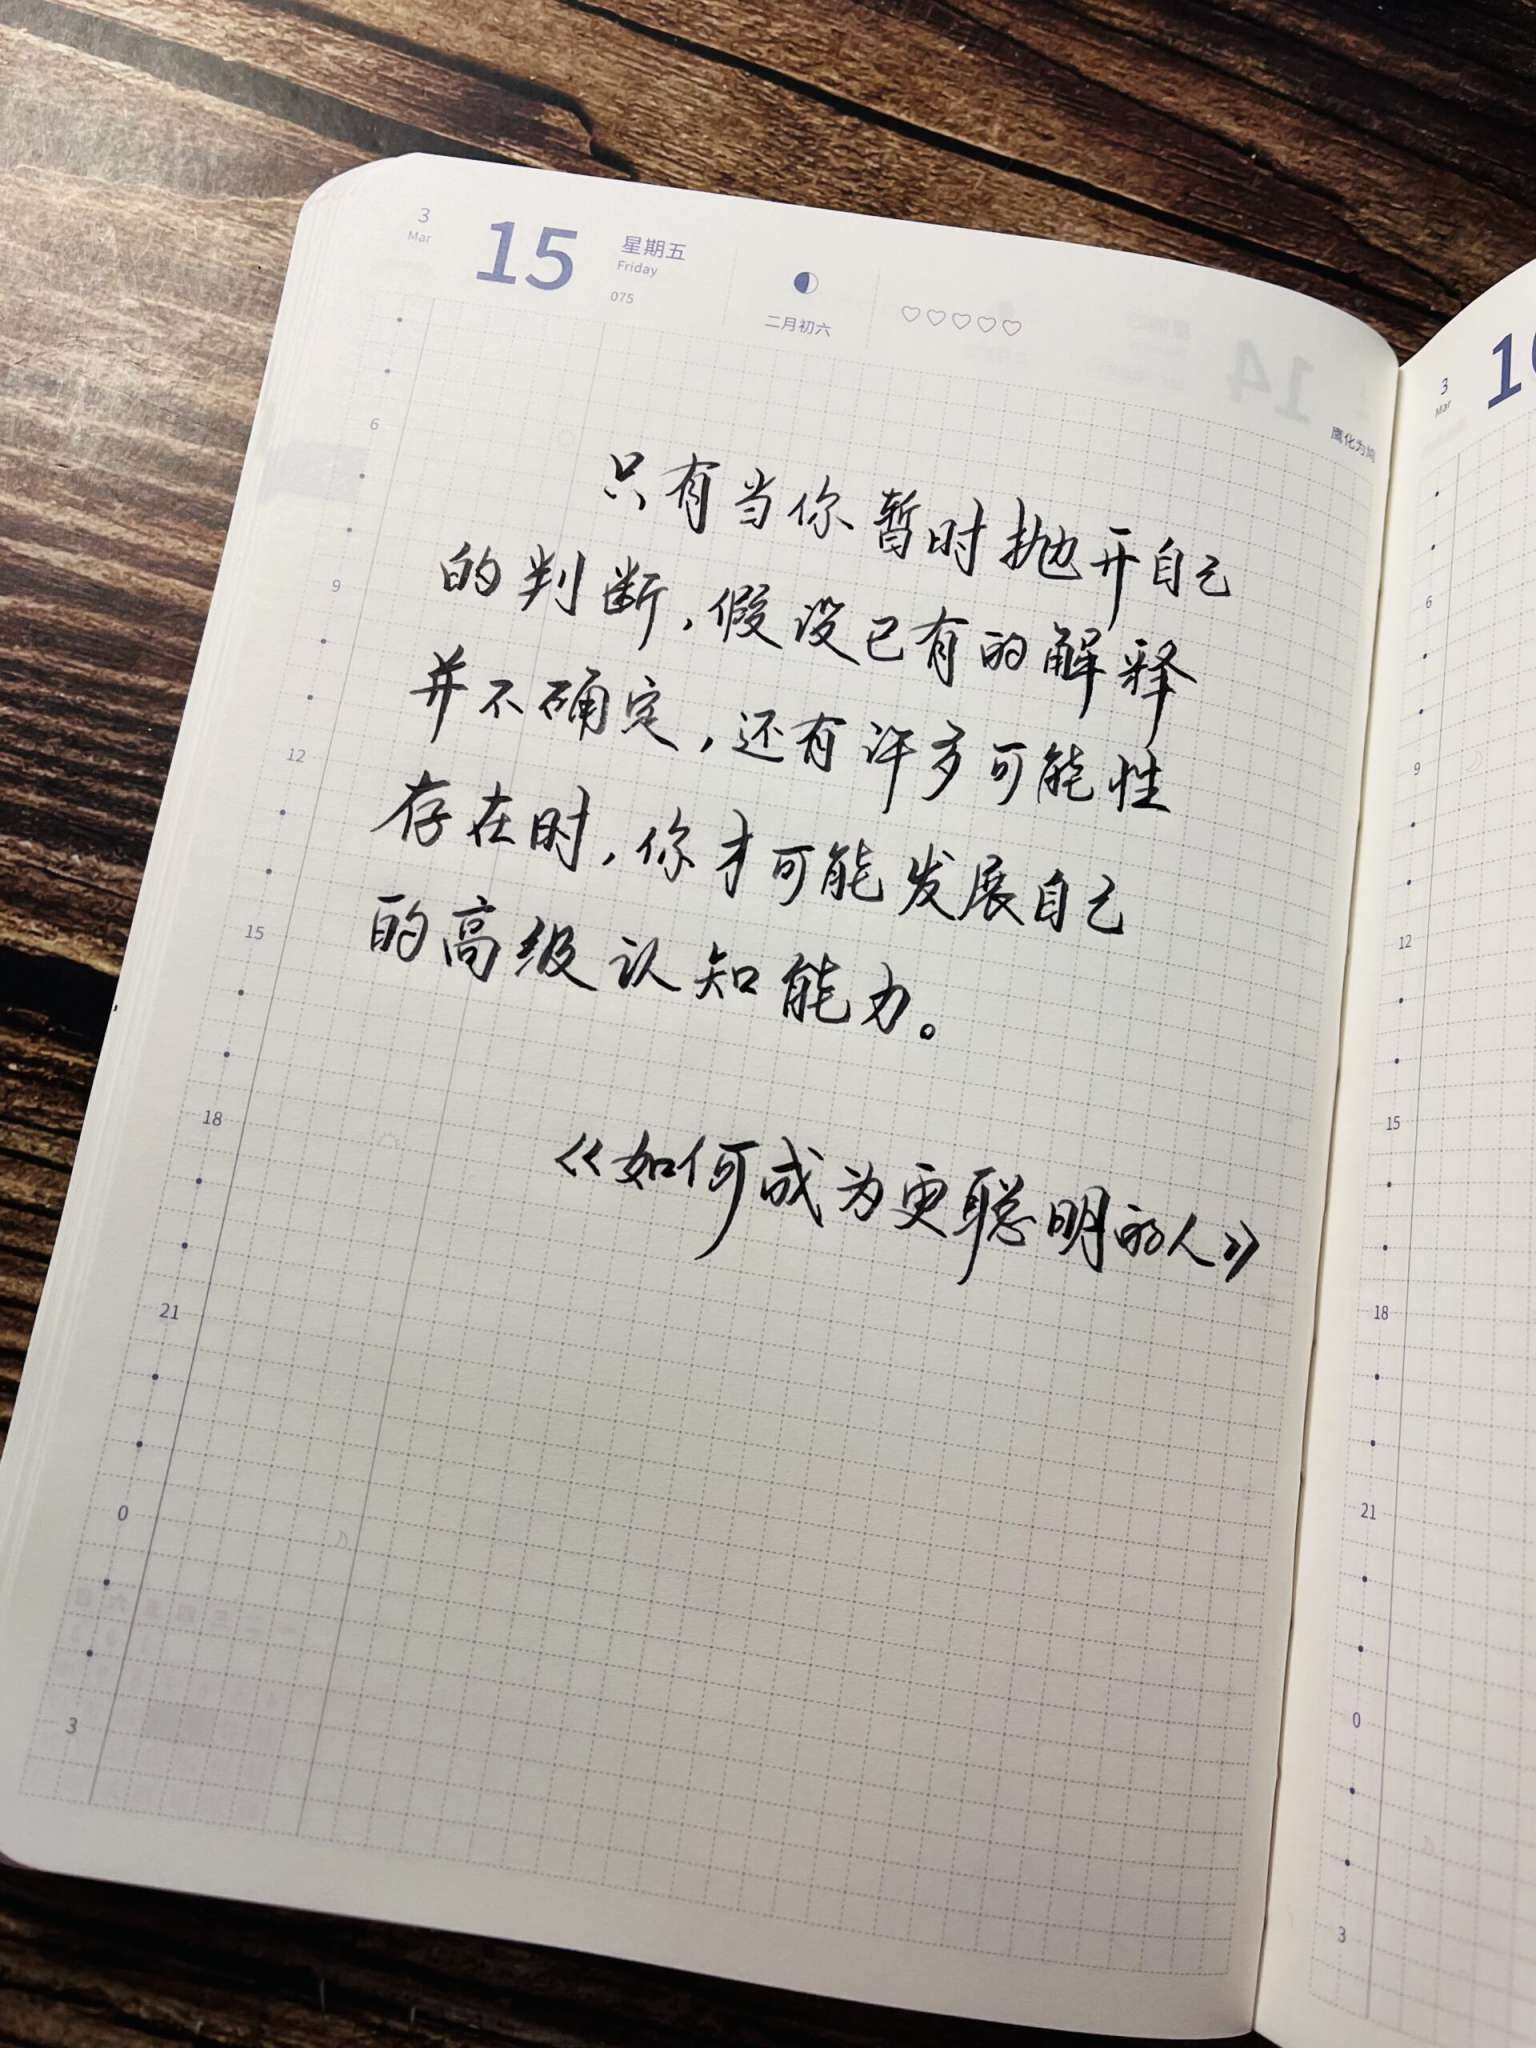 3
Mar
15
星期五
Friday
075
二月初六
14
鹰化为鸠
只有当你暂时抛开自己
的判断，假设已有的解释
并不确定，还有许多可能性
存在时，你才可能发展自己
的高级认知能力。
《如何成为更聪明的人》
6
9
12
15
18
21
0
3
3
Mar
6
9
12
15
18
21
0
3